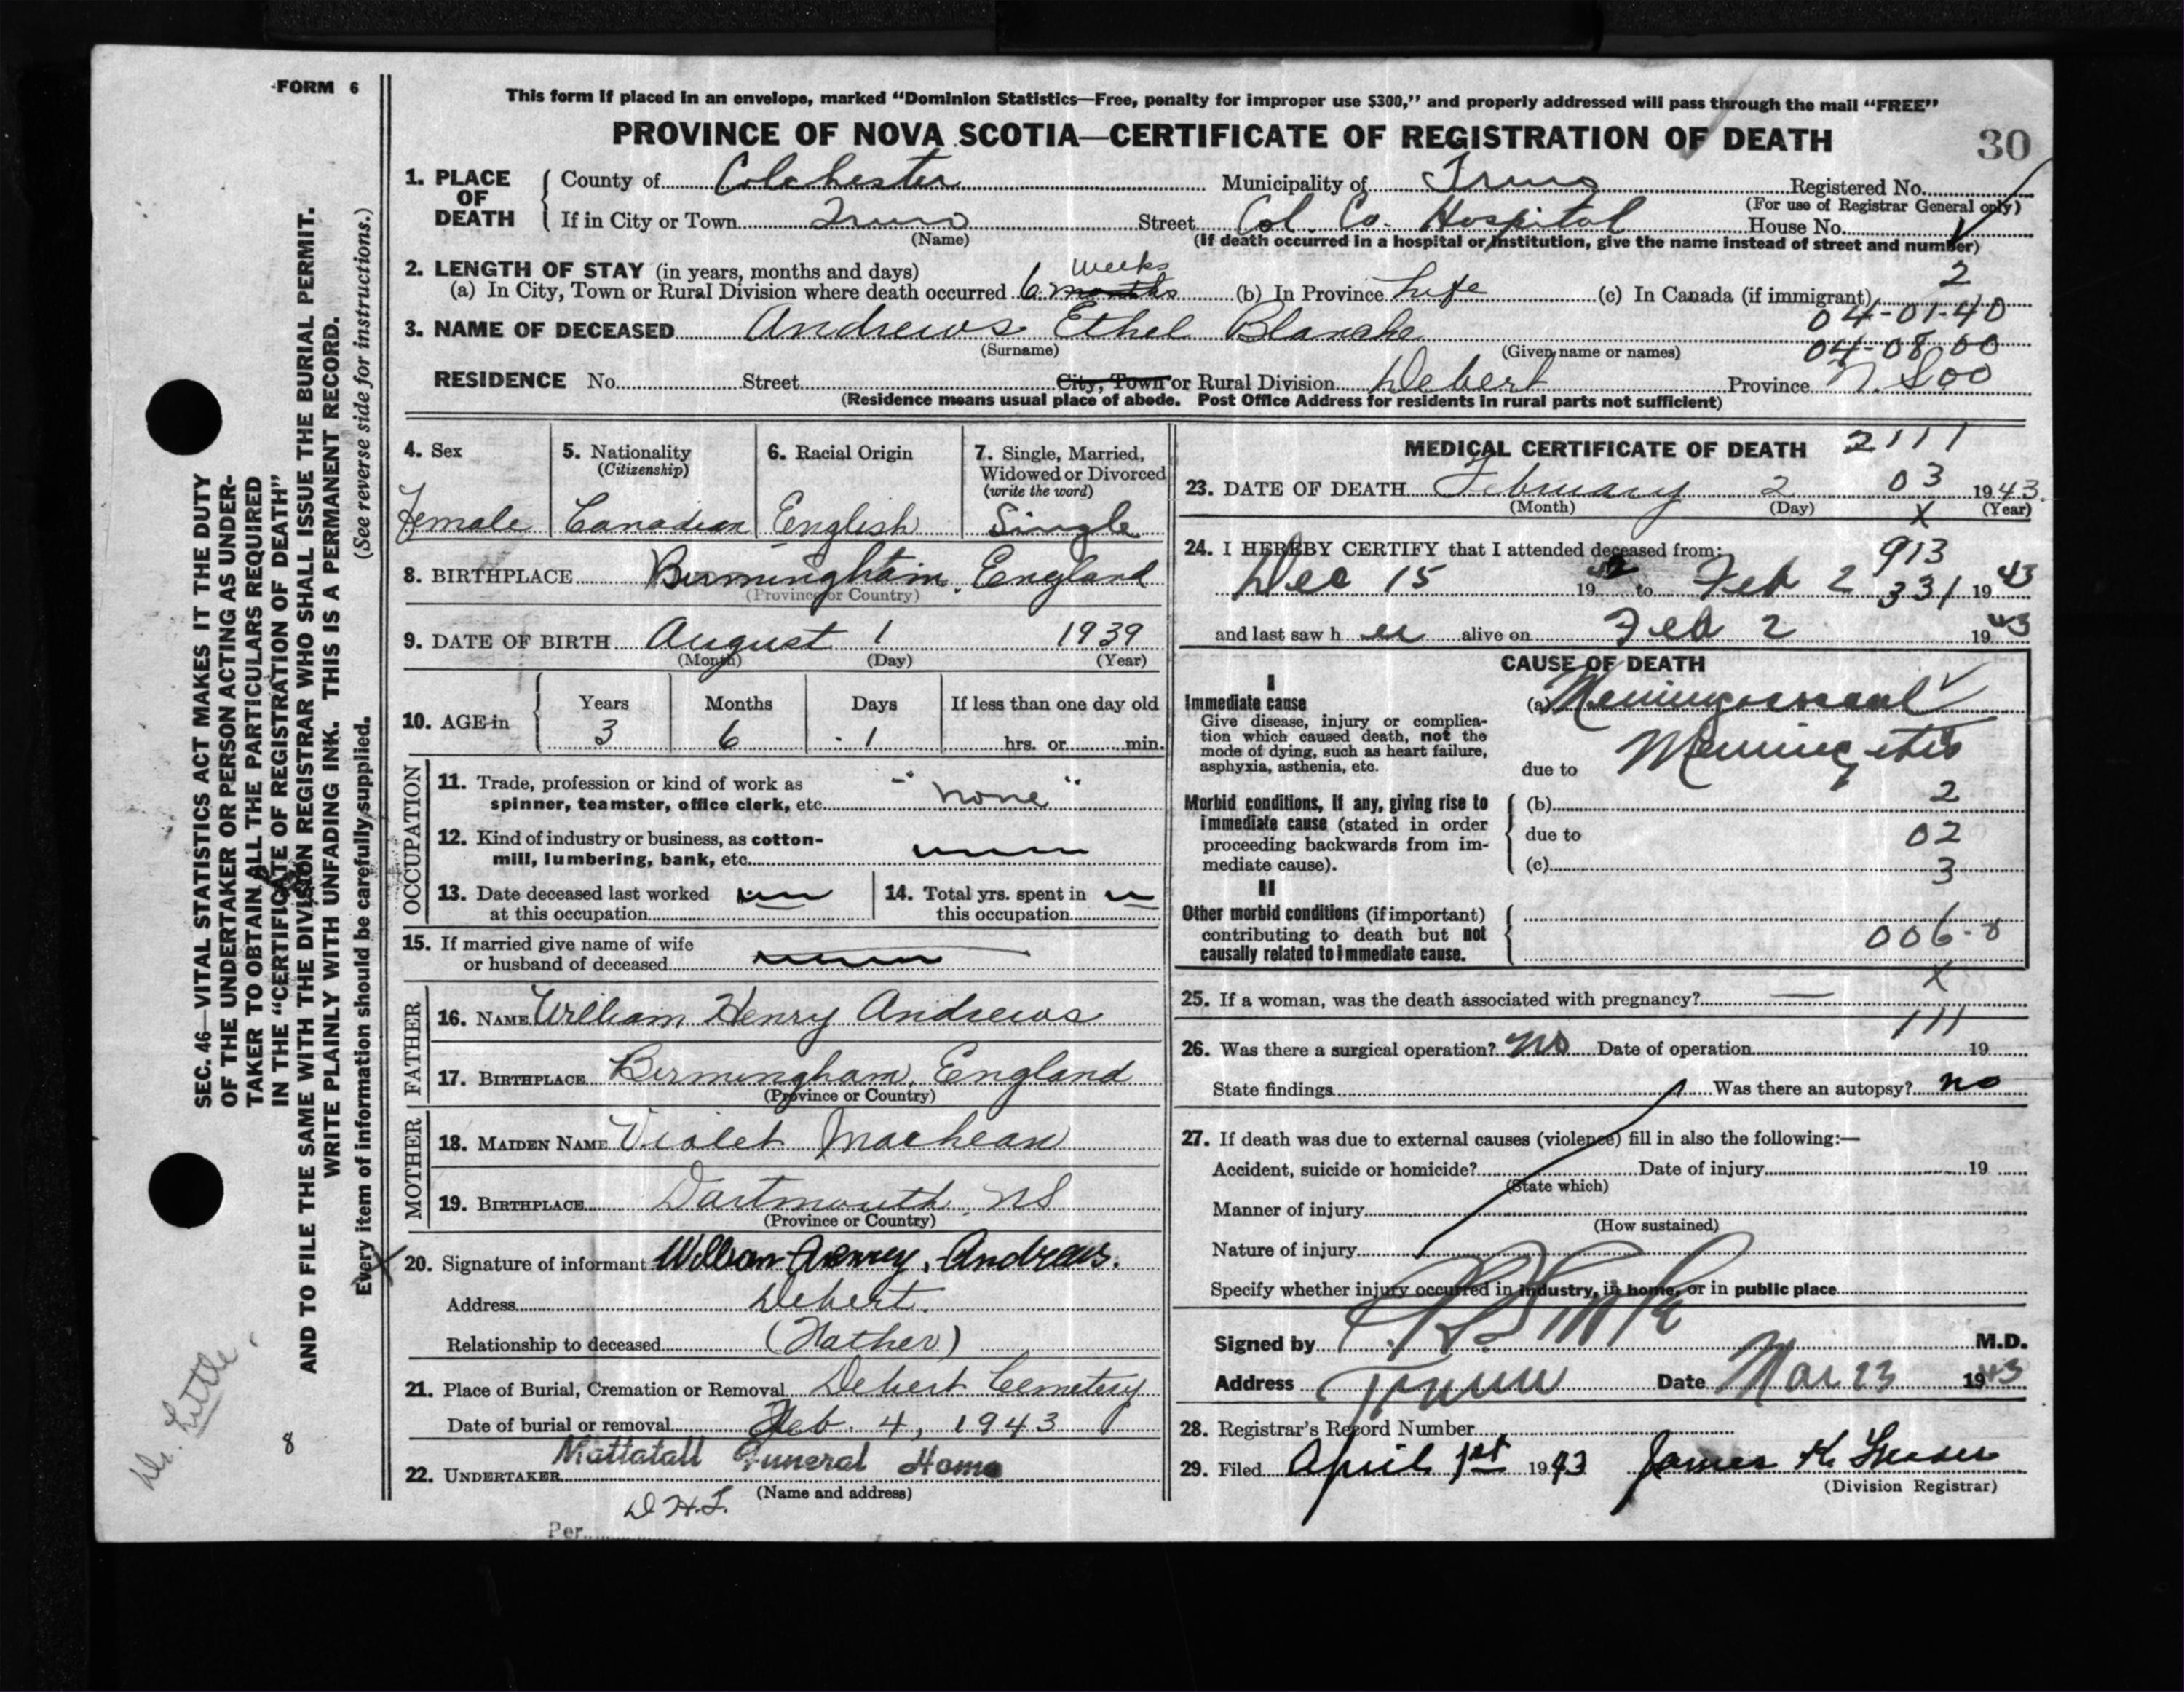 FORM 6
This form if placed in an envelope, marked “Dominion Statistics—Free, penalty for improper use $300,” and properly addressed will pass through the mail “FREE”
PROVINCE OF NOVA SCOTIA—CERTIFICATE OF REGISTRATION OF DEATH 30
1. PLACE OF DEATH
County of Colchester Municipality of Truro Registered No.
(For use of Registrar General only)
If in City or Town Truro Street Col. Co. Hospital House No.
(Name) (If death occurred in a hospital or institution, give the name instead of street and number)
2. LENGTH OF STAY (in years, months and days) weeks 2
(a) In City, Town or Rural Division where death occurred 6 months (b) In Province Life (c) In Canada (if immigrant)
04-01-40
3. NAME OF DECEASED Andrews Ethel Blanche
(Surname) (Given name or names) 04-08 00
RESIDENCE No. Street City, Town or Rural Division Debert Province N. S 00
(Residence means usual place of abode. Post Office Address for residents in rural parts not sufficient)
4. Sex 5. Nationality (Citizenship) 6. Racial Origin 7. Single, Married, Widowed or Divorced (write the word)
Female Canadian English Single
8. BIRTHPLACE Birmingham, England
(Province or Country)
9. DATE OF BIRTH August 1 1939
(Month) (Day) (Year)
10. AGE in Years Months Days If less than one day old
3 6 1 hrs. or min.
OCCUPATION
11. Trade, profession or kind of work as
spinner, teamster, office clerk, etc. "none"
12. Kind of industry or business, as cotton-
mill, lumbering, bank, etc.
13. Date deceased last worked at this occupation 14. Total yrs. spent in this occupation
15. If married give name of wife
or husband of deceased
FATHER
16. NAME William Henry Andrews
17. BIRTHPLACE Birmingham, England
(Province or Country)
MOTHER
18. MAIDEN NAME Violet
19. BIRTHPLACE Dartmouth NS
(Province or Country)
20. Signature of informant William Henry, Andrews.
Address Debert.
Relationship to deceased (Father)
21. Place of Burial, Cremation or Removal Debert Cemetery
Date of burial or removal Feb. 4, 1943
22. UNDERTAKER Mattatall Funeral Home
(Name and address)
Per
MEDICAL CERTIFICATE OF DEATH 2111
23. DATE OF DEATH February 2 03 1943.
(Month) (Day) X (Year)
24. I HEREBY CERTIFY that I attended deceased from: 913
Dec 15 1942 to Feb 2 331 1943
and last saw h er alive on Feb 2 1943
CAUSE OF DEATH
I
Immediate cause
Give disease, injury or complica-
tion which caused death, not the
mode of dying, such as heart failure,
asphyxia, asthenia, etc.
(a) Meningococcal
due to Meningitis
Morbid conditions, if any, giving rise to
immediate cause (stated in order
proceeding backwards from im-
mediate cause).
(b) 2
due to 02
(c) 3
II
Other morbid conditions (if important)
contributing to death but not
causally related to immediate cause.
006-8
X
25. If a woman, was the death associated with pregnancy? —
111
26. Was there a surgical operation? no Date of operation 19
State findings Was there an autopsy? no
27. If death was due to external causes (violence) fill in also the following:—
Accident, suicide or homicide? Date of injury 19
(State which)
Manner of injury
(How sustained)
Nature of injury
Specify whether injury occurred in industry, in home, or in public place
Signed by M.D.
Address Truro Date Mar 23 1943
28. Registrar's Record Number
29. Filed April 1st 1943 James K
(Division Registrar)
SEC. 46—VITAL STATISTICS ACT MAKES IT THE DUTY
OF THE UNDERTAKER OR PERSON ACTING AS UNDER-
TAKER TO OBTAIN ALL THE PARTICULARS REQUIRED
IN THE “CERTIFICATE OF REGISTRATION OF DEATH”
AND TO FILE THE SAME WITH THE DIVISION REGISTRAR WHO SHALL ISSUE THE BURIAL PERMIT.
WRITE PLAINLY WITH UNFADING INK. THIS IS A PERMANENT RECORD.
Every item of information should be carefully supplied. (See reverse side for instructions.)
Dr. Little.
8